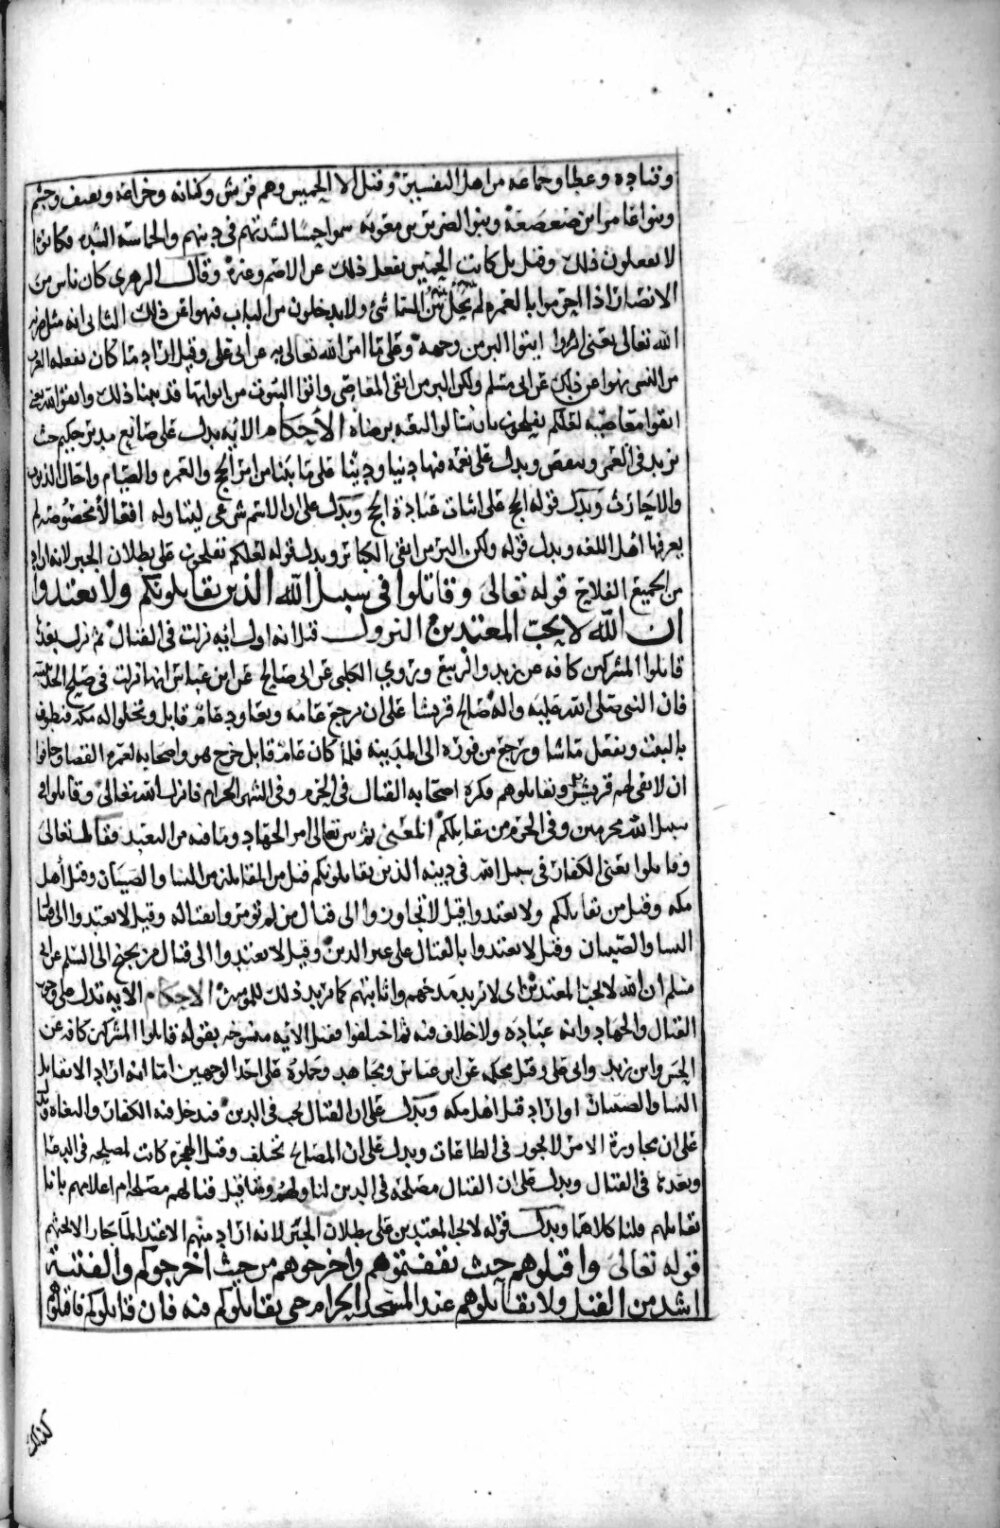 وقتاده وعطا وجماعه من اهل التفسير وقيل الا الحمس وهم قريش وكنانه وخزاعه وثقيف وجشم
وبنوا عامر ابن صعصعة وبنوا النضر بن معويه سموا حمسا لشدتهم في دينهم والحماسه الشده فكانوا
لا يفعلون ذلك وقيل بل كانت الحمس تفعل ذلك عن الاصم وغيره وقال الزهري كان ناس من
الانصار اذا احرموا بالعمره لم يحل بينهم وبين السما شئ ولا يدخلون من الباب فنهوا عن ذلك الثاني انه مثل ضربه
الله تعالى يعني ايتوا البر من وجهه وعلى ما امر الله تعالى به عن ابي علي وقيل اراد ما كان يفعله العرب
من النسي نهوا عن ذلك عن ابي مسلم ولكن البر من اتقى المعاصي واتوا البيوت من ابوابها قد بينا ذلك واتقوا الله يعني
اتقوا معاصيه لعلكم تفلحون بان تنالوا البغيه برضاه الاحكام الايه يدل على صانع مدبر حكيم حيث
يزيد في القمر وينقص ويدل على نعمه فيها دنيا ودينا على ما بينا من امر الحج والعمره والصيام واحال الديون
والاجارات ويدل قوله الحج على اثبات عبادة الحج ويدل على ان الاسم شرعي ليتناوله افعالا مخصوصه لم
يعرفها اهل اللغه ويدل قوله ولكن البر من اتقى الكبائر ويدل قوله لعلكم تفلحون على بطلان الجبر لانه اراد
من الجميع الفلاح قوله تعالى وقاتلوا في سبيل الله الذين يقاتلونكم ولا تعتدوا
ان الله لا يحب المعتدين النزول قيل انه اول ايه نزلت في القتال ثم نزل بعدها
قاتلوا المشركين كافه عن زيد والربيع وروي الكلبي عن ابي صالح عن ابن عباس انها نزلت في صلح الحديبيه
فان النبي صلى الله عليه واله صالح قريشا على ان يرجع عامه ويعاود عام قابل ويخلوا له مكه فيطوف
بالبيت ويفعل ماشا ورجع من فوره الى المدينه فلما كان عام قابل خرج هو واصحابه لعمره القضا وخافوا
ان لا تفي لهم قريش وتقاتلوهم فكره اصحابه القتال في الحرم وفي الشهر الحرام فانزل الله تعالى وقاتلوا في
سبيل الله محرمين وفي الحرم من يقاتلكم المعنى ثم بين تعالى امر الجهاد وما فيه من التعبد فقال تعالى
وقاتلوا يعني الكفار في سبيل الله في دينه الذين يقاتلونكم قيل من المقاتله من النسا والصبيان وقيل اهل
مكه وقيل من يقاتلكم ولا تعتدوا قيل لا تجاوزوا الى قتال من لم تؤمروا بقتاله وقيل لا تعتدوا الى قتال
النسا والصبيان وقيل لا تعتدوا بالقتال على غير الدين وقيل لا تعتدوا الى قتال من يجنح الى السلم عن ابي
مسلم ان الله لا يحب المعتدين اي لا يريد مدحهم واثابتهم كما يريد ذلك للمؤمنين الاحكام الايه تدل على وجوب
القتال والجهاد وانه عباده ولا خلاف فيه ثم اختلفوا فقيل الايه منسوخه بقوله قاتلوا المشركين كافه عن
الحسن وابن زيد وابي علي وقيل محكمه عن ابن عباس ومجاهد وحملوه على احد الوجهين اما انه اراد الا نقاتل
النسا والصبيان او اراد قبل اهل مكه ويدل على ان القتال يجب في الدين فيدخل فيه الكفار والبغاه ويدل
على ان مجاوزة الامر لا يجوز في الطاعات ويدل على ان المصالح تختلف وقبل الهجره كانت المصلحه في الدعا
وبعدها في القتال ويدل على ان القتال مصلحة في الدين لنا ولهم ومتى قيل قتالهم مصلحه ام اعلامهم بانا
نقاتلهم قلنا كلاهما ويدل قوله لا يحب المعتدين على بطلان الجبر لانه اراد منهم الاعتدا لما جاز الا يحبهم
قوله تعالى واقتلوهم حيث ثقفتموهم واخرجوهم من حيث اخرجوكم والفتنة
اشد من القتل ولا تقاتلوهم عند المسجد الحرام حتى يقاتلوكم فيه فان قاتلوكم فاقتلوهم
كذلك